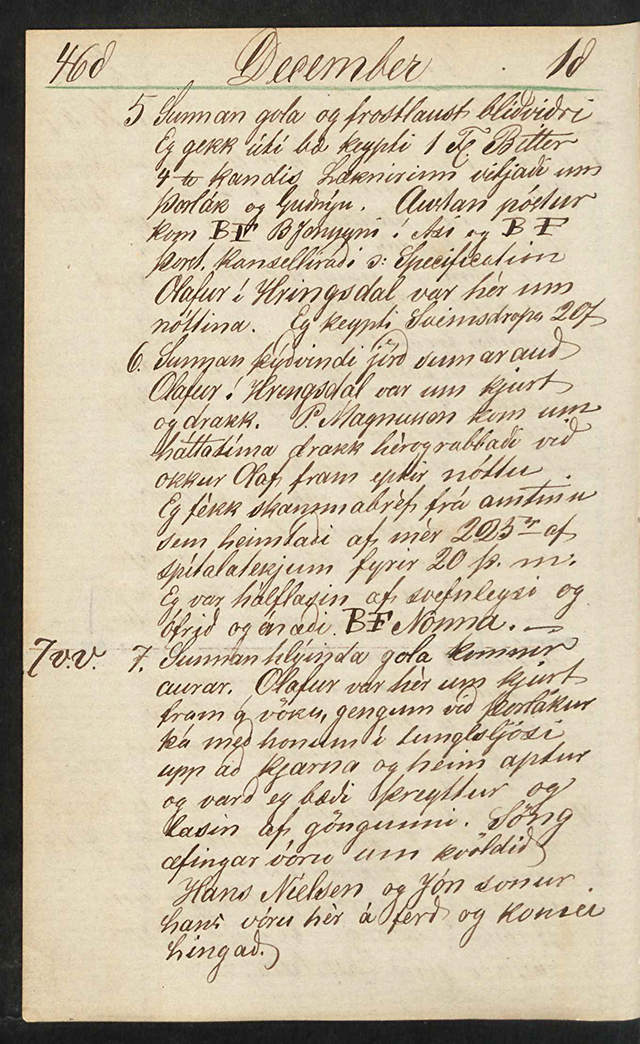 468 December 18
5 Sunnan gola og frostlaust blíðviðri
Eg gekk útí bæ keypti 1 Bitter
4 kandis Læknirinn vitjaði um
Þorlák og Guðnýu. Austan póstur
kom BF BJónssyni. Ási og BF
Þorst. kansellíráði s: Specification
Olafur í Hringsdal var hér um
nóttina. Eg keypti 20f
6. Sunnan þýðvindi jörð sumarauð
Olafur í Hringsdal var um kjurt
og drakk. P. Magnusson kom um
háttatíma drakk hér og rabbaði við
okkur Olaf fram eptir nóttu.
Eg fékk skammabréf frá amtinu
sem heimtaði af mér 225 af
spítalatekjum fyrir 20 þ. m:
Eg var hálflasin af svefnleysi og
ófrið og BF Nonna. —
7 v.v. 7. Sunnan hlýinda gola komnir
aurar. Olafur var hér um kjurt
fram á vöku, gengum við Þorlákur
þá með honum í tunglsljósi
upp að Kjarna og heim aptur
og varð eg bæði þreyttur og
lasin af göngunni. Söng
æfingar vóru um kvöldið
Hans Nielsen og Jón sonur
hans vóru hér á ferð og komu
hingað.